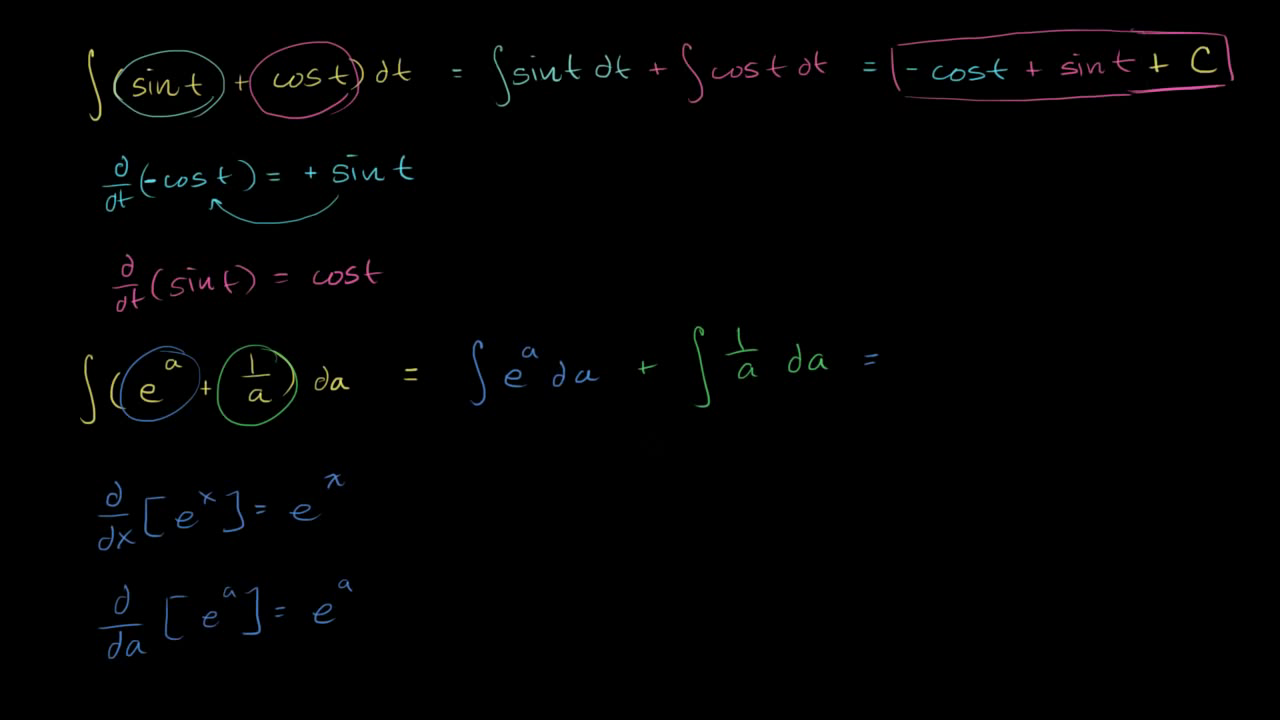 ∫(sin t + cos t) dt = ∫ sin t dt + ∫ cos t dt = - cos t + sin t + C
d/dt (-cos t) = + sin t
d/dt (sin t) = cos t
∫(e^a + 1/a) da = ∫ e^a da + ∫ 1/a da =
d/dx [e^x] = e^x
d/da [e^a] = e^a